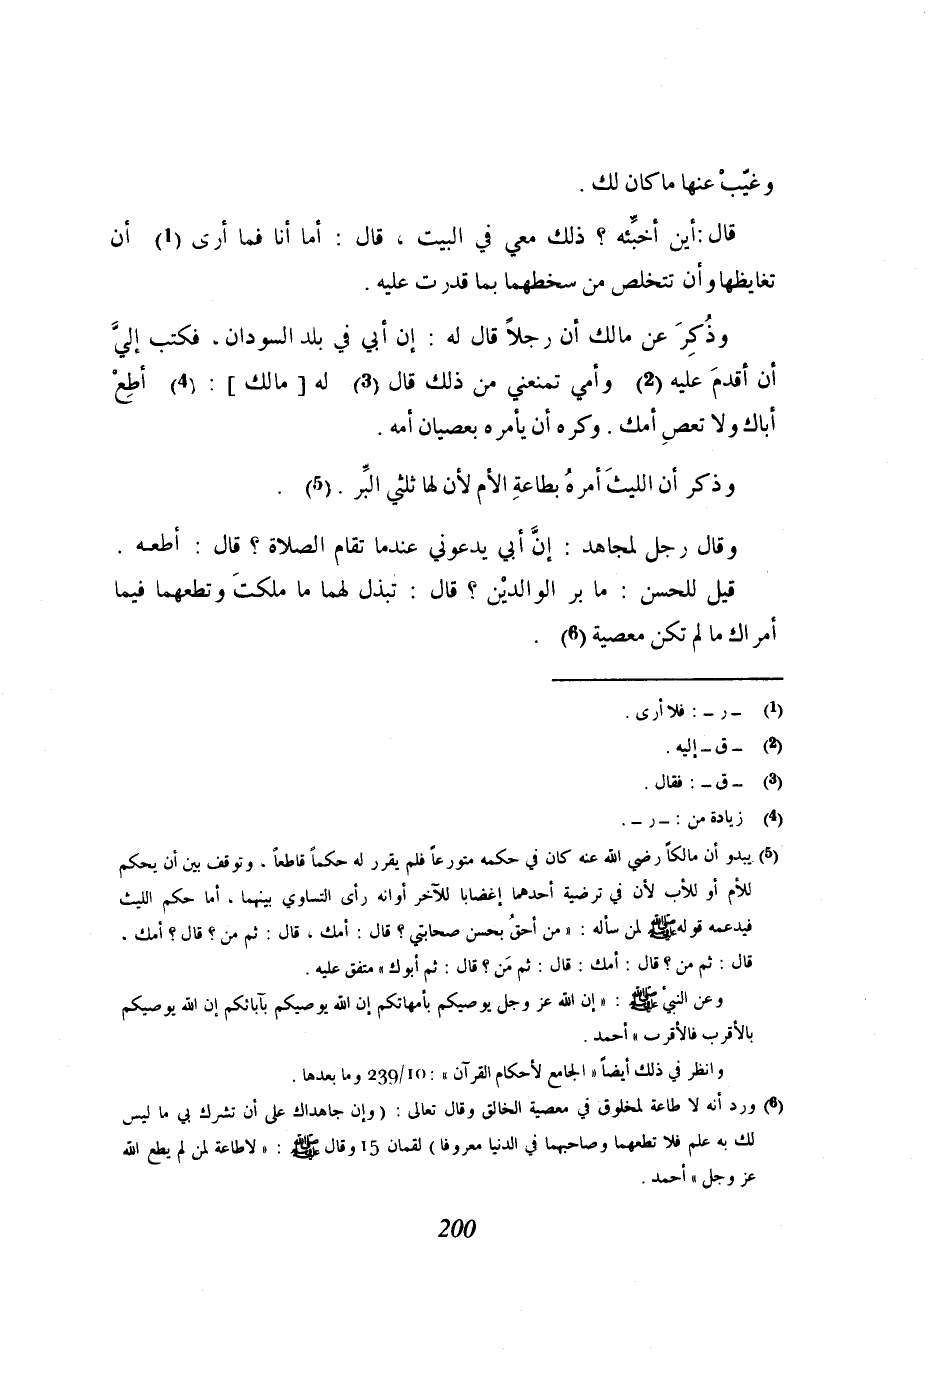 وغيّبْ عنها ما كان لك .
قال :أين أخبِّئه ؟ ذلك معي في البيت ، قال : أما أنا فما أرى (1) أن
تغايظها وأن تتخلص من سخطهما بما قدرت عليه .
وذُكِرَ عن مالك أن رجلاً قال له : إن أبي في بلد السودان . فكتب إليَّ
أن أقدمَ عليه (2) وأمي تمنعني من ذلك قال (3) له [ مالك ] : (4) أطِعْ
أباك ولا تعصِ أمك . وكره أن يأمره بعصيان أمه .
وذكر أن الليثَ أمرهُ بطاعةِ الأم لأن لها ثلثي البِّر . (5) .
وقال رجل لمجاهد : إنَّ أبي يدعوني عندما تقام الصلاة ؟ قال : أطعه .
قيل للحسن : ما بر الوالديْن ؟ قال : تبذل لهما ما ملكتَ وتطعهما فيما
أمراك ما لم تكن معصية (6) .
(1) ـ ر ـ : فلا أرى .
(2) ـ ق ـ إليه .
(3) ـ ق ـ : فقال .
(4) زيادة من : ـ ر ـ .
(5) يبدو أن مالكاً رضي الله عنه كان في حكمه متورعاً فلم يقرر له حكماً قاطعاً . وتوقف بين أن يحكم
للأم أو للأب لأن في ترضية أحدهما إغضابا للآخر أوانه رأى التساوي بينهما . أما حكم الليث
فيدعمه قوله ﷺ لمن سأله : « من أحقُ بحسن صحابتي ؟ قال : أمك ، قال : ثم من ؟ قال ؟ أمك .
قال : ثم من ؟ قال : أمك : قال : ثم مَن ؟ قال : ثم أبوك » متفق عليه .
وعن النبيْ ﷺ : « إن الله عز وجل يوصيكم بأمهاتكم إن الله يوصيكم بآبائكم إن الله يوصيكم
بالأقرب فالأقرب » أحمد .
وانظر في ذلك أيضاً « الجامع لأحكام القرآن » : 239/10 وما بعدها .
(6) ورد أنه لا طاعة لمخلوق في معصية الخالق وقال تعالى : ( وإن جاهداك على أن تشرك بي ما ليس
لك به علم فلا تطعهما وصاحبهما في الدنيا معروفا ) لقمان 15 وقال ﷺ : « لاطاعة لمن لم يطع الله
عز وجل » أحمد .
200